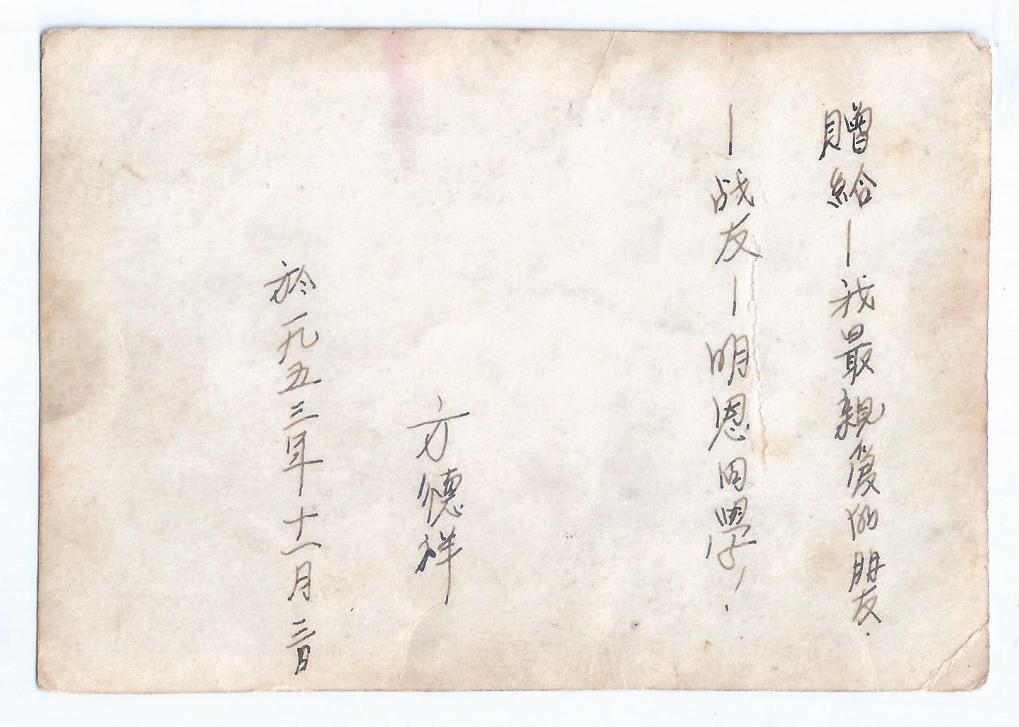 贈給—我最親爱的朋友.
—战友—明恩同學，.
方德祥
於一九五三年十一月三日